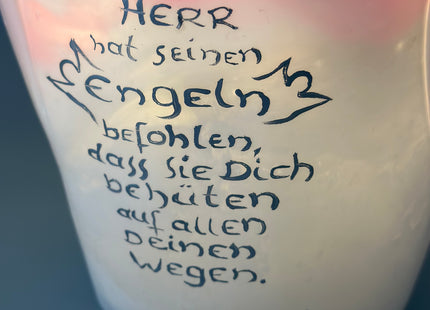 HERR
hat seinen
Engeln
befohlen,
dass sie Dich
behüten
auf allen
Deinen
Wegen.